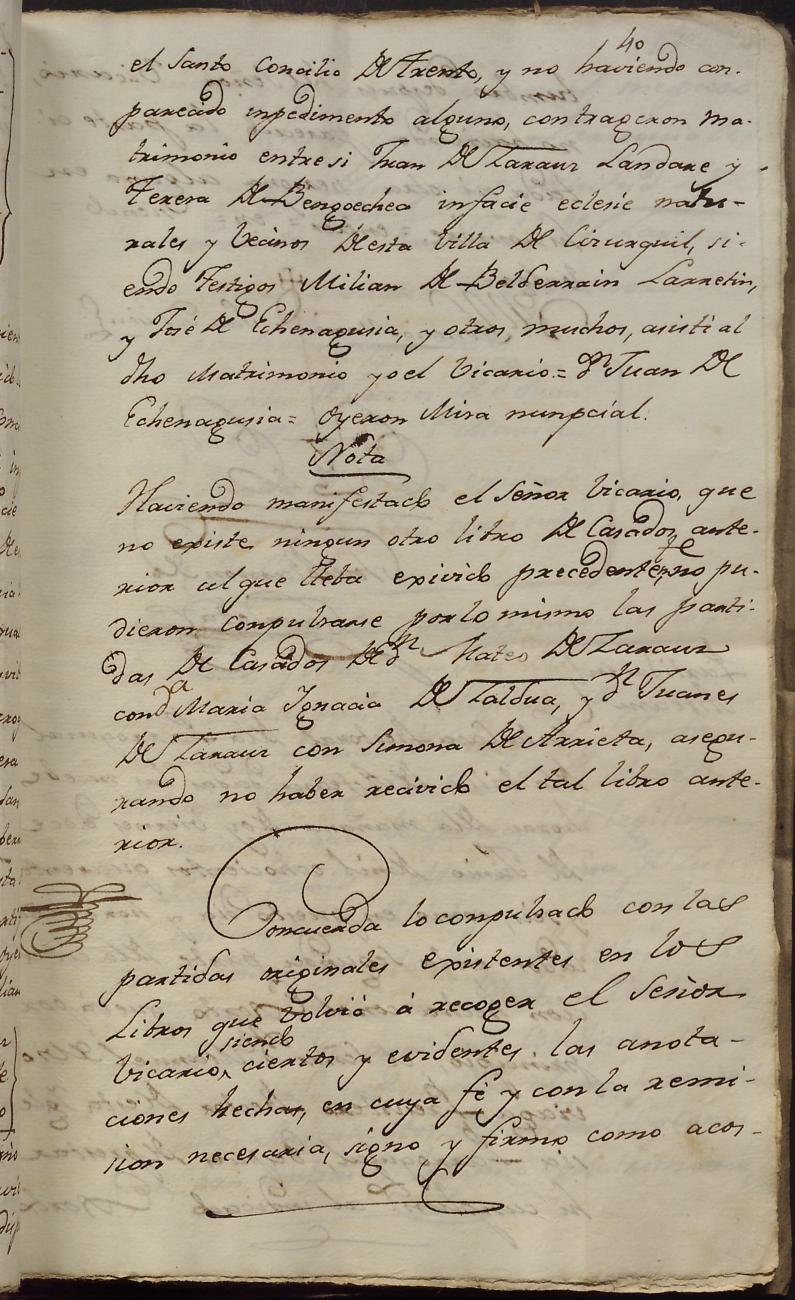 40
el Santo Concilio De Trento, y no haviendo con-
pareado inpedimento alguno, contrageron ma-
trimonio entresi Fran De Zarauz Landare y
Teresa De Bengoechea infacie eclesie natu-
rales y Vecinos Desta Villa De Cizurquil, si-
endo Testigos Milian De Belderrain Larretin,
y José De Echenagusia, y otros muchos, asisti al
dho Matrimonio yo el Vicario = Dn Juan De
Echenagusia = oyeron Misa nunpcial.
Nota
Haviendo manifestado el Señor Vicario, que
no existe ningun otro libro De Casados ante-
rior al que lleba exivido precedentete, no pu-
dieron conpulsarse por lo mismo las parti-
das De Casados De dn Mateo De Zarauz
con da Maria Ygnacia De Zaldua, y dn Juanes
De Zarauz con Simona De Arrieta, asegu-
rando no haber recivido el tal libro ante-
rior.
Concuerda lo conpulsado con las
partidas originales existentes en los
Libros que volvió á recoger el Señor
siendo
Vicario, ciertos y evidentes las anota-
ciones hechas, en cuya fé y con la remi-
sion necesaria, signo y firmo como acos-